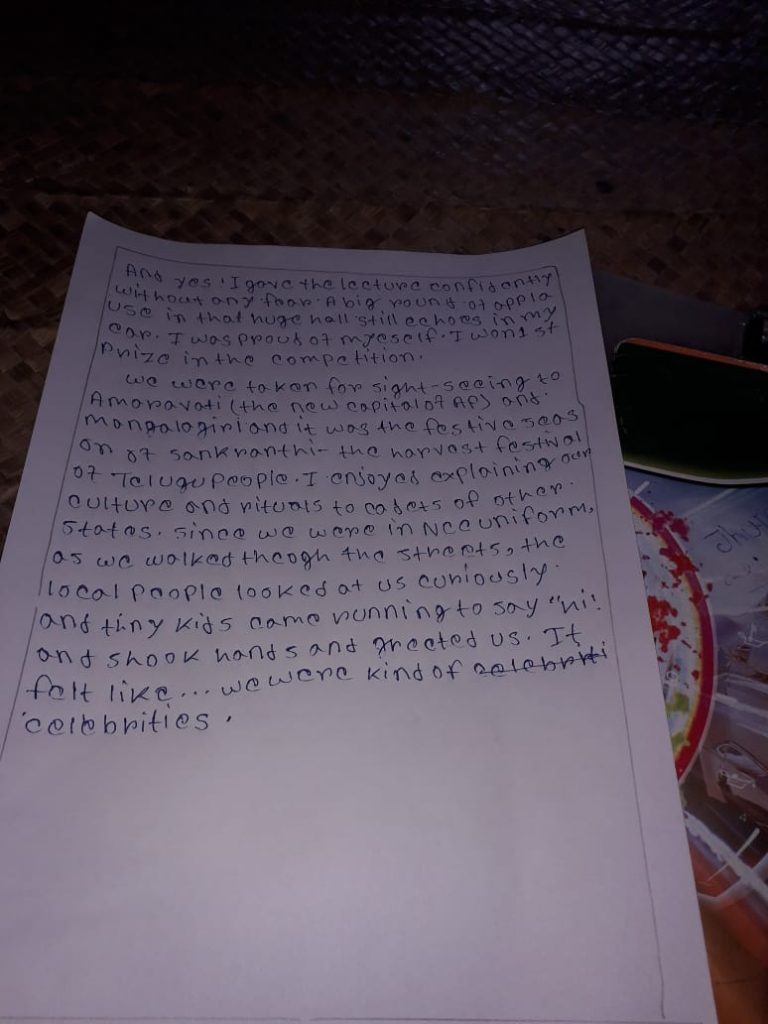 And yes! I gave the lecture confidantly
without any fear. A big round of appla
use in that huge hall still echoes in my
ear. I was proud of myself. I won 1st
prize in the competition.
We were taken for sight-seeing to
Amaravati (the new capital of AP) and
Mangalagiri and it was the festive seas
on of sankranthi- the harvest festival
of Telugu people. I enjoyed explaining our
culture and rituals to cadets of other
states. since we were in NCC uniform,
as we walked theogh the streets, the
local people looked at us curiously
and tiny kids came running to say "hi!
and shook hands and greeted us. It
felt like... we were kind of celebriti
celebrities.